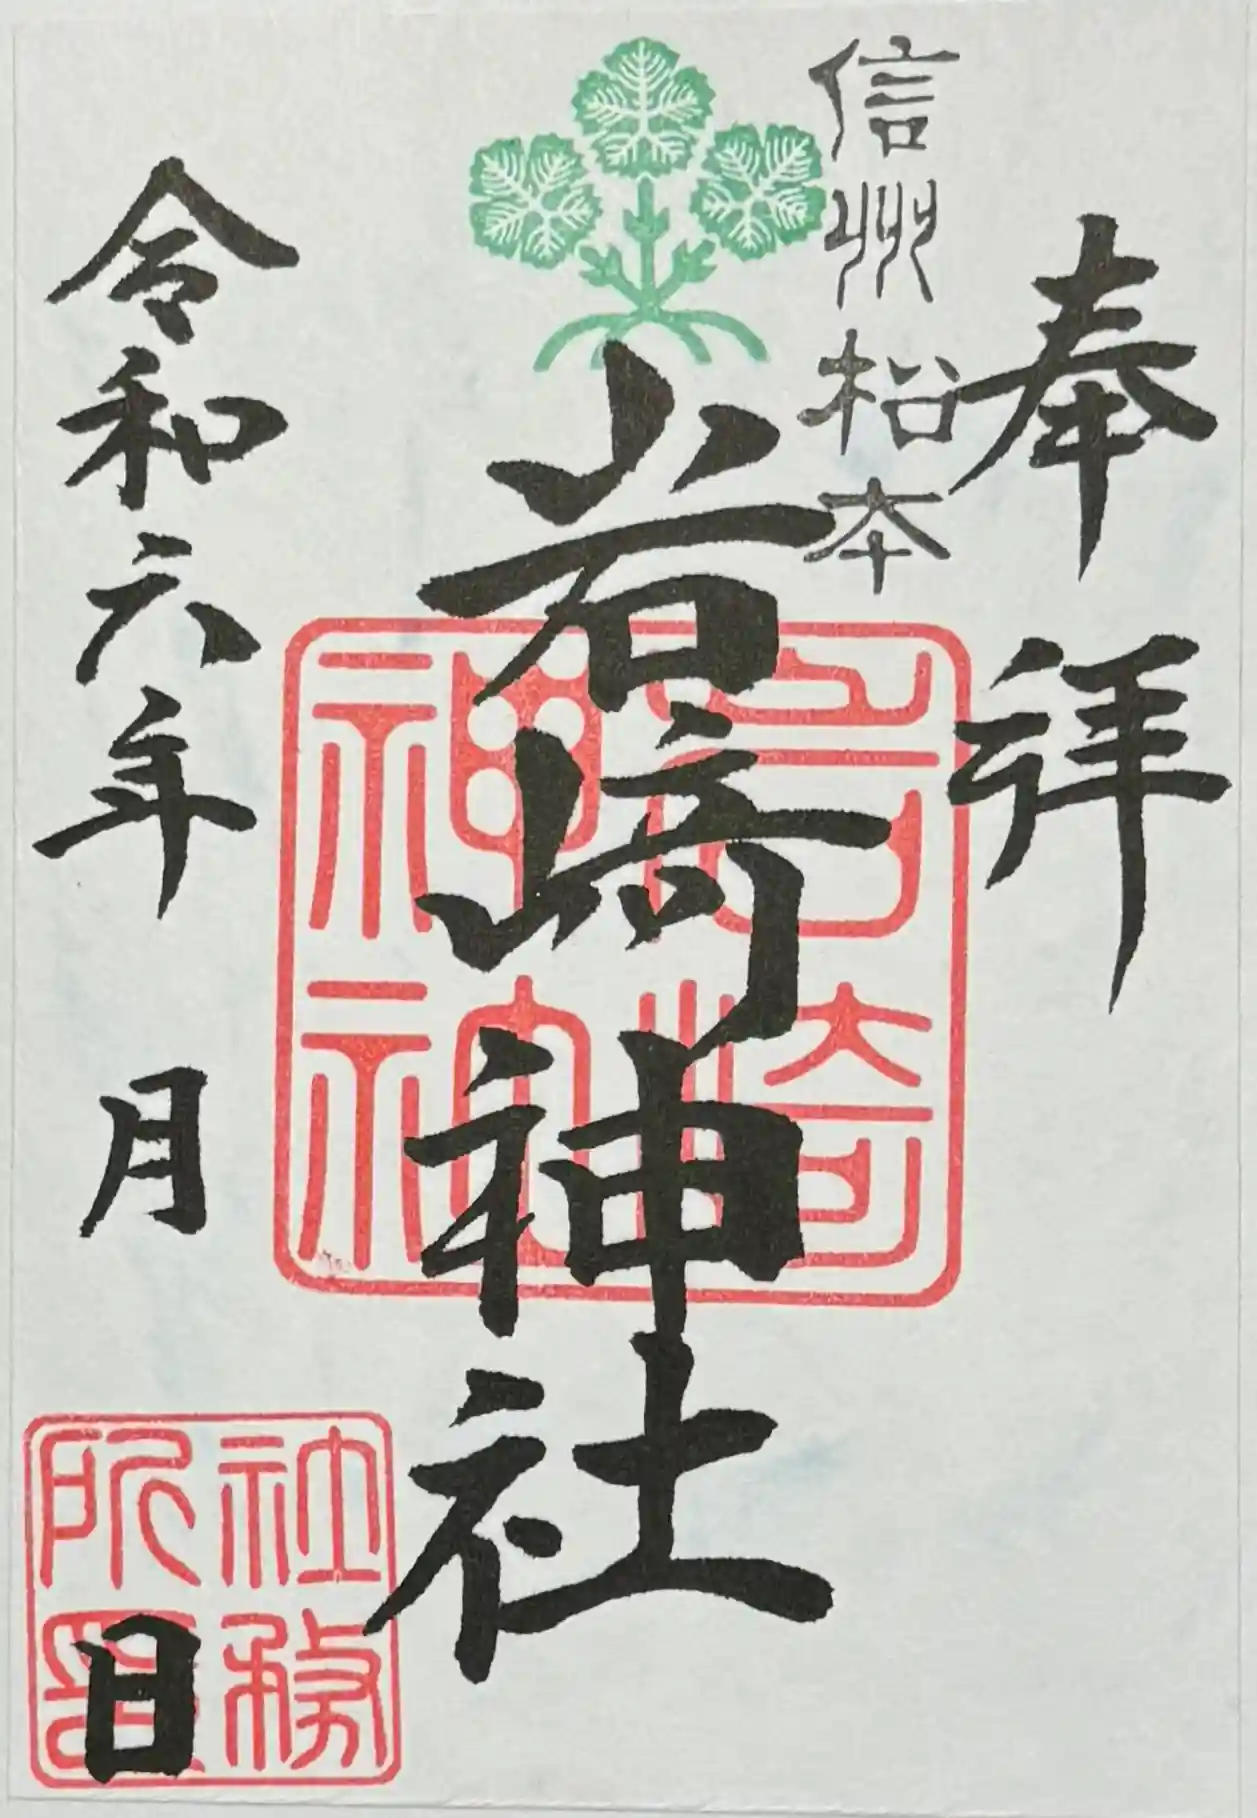 奉拝
信州松本
岩崎神社
岩崎神社
令和六年 月 日
社務所印